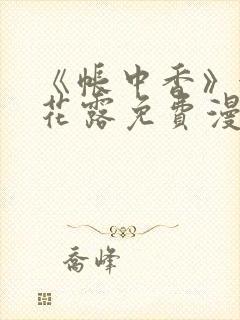 《帐中香》
花露免费漫
乔峰